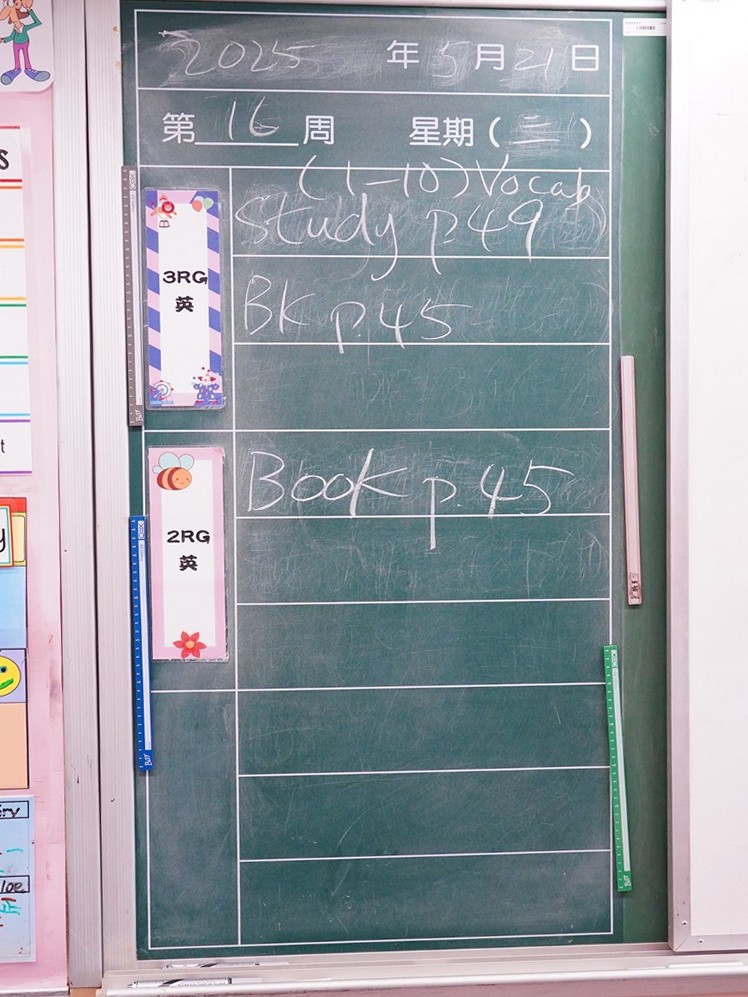 2025 年 5 月 21 日
第 16 周 星期 ( 三 )
(1-10) Vocab
Study p.49
3RG
英
BK p.45
2RG
英
Book p.45